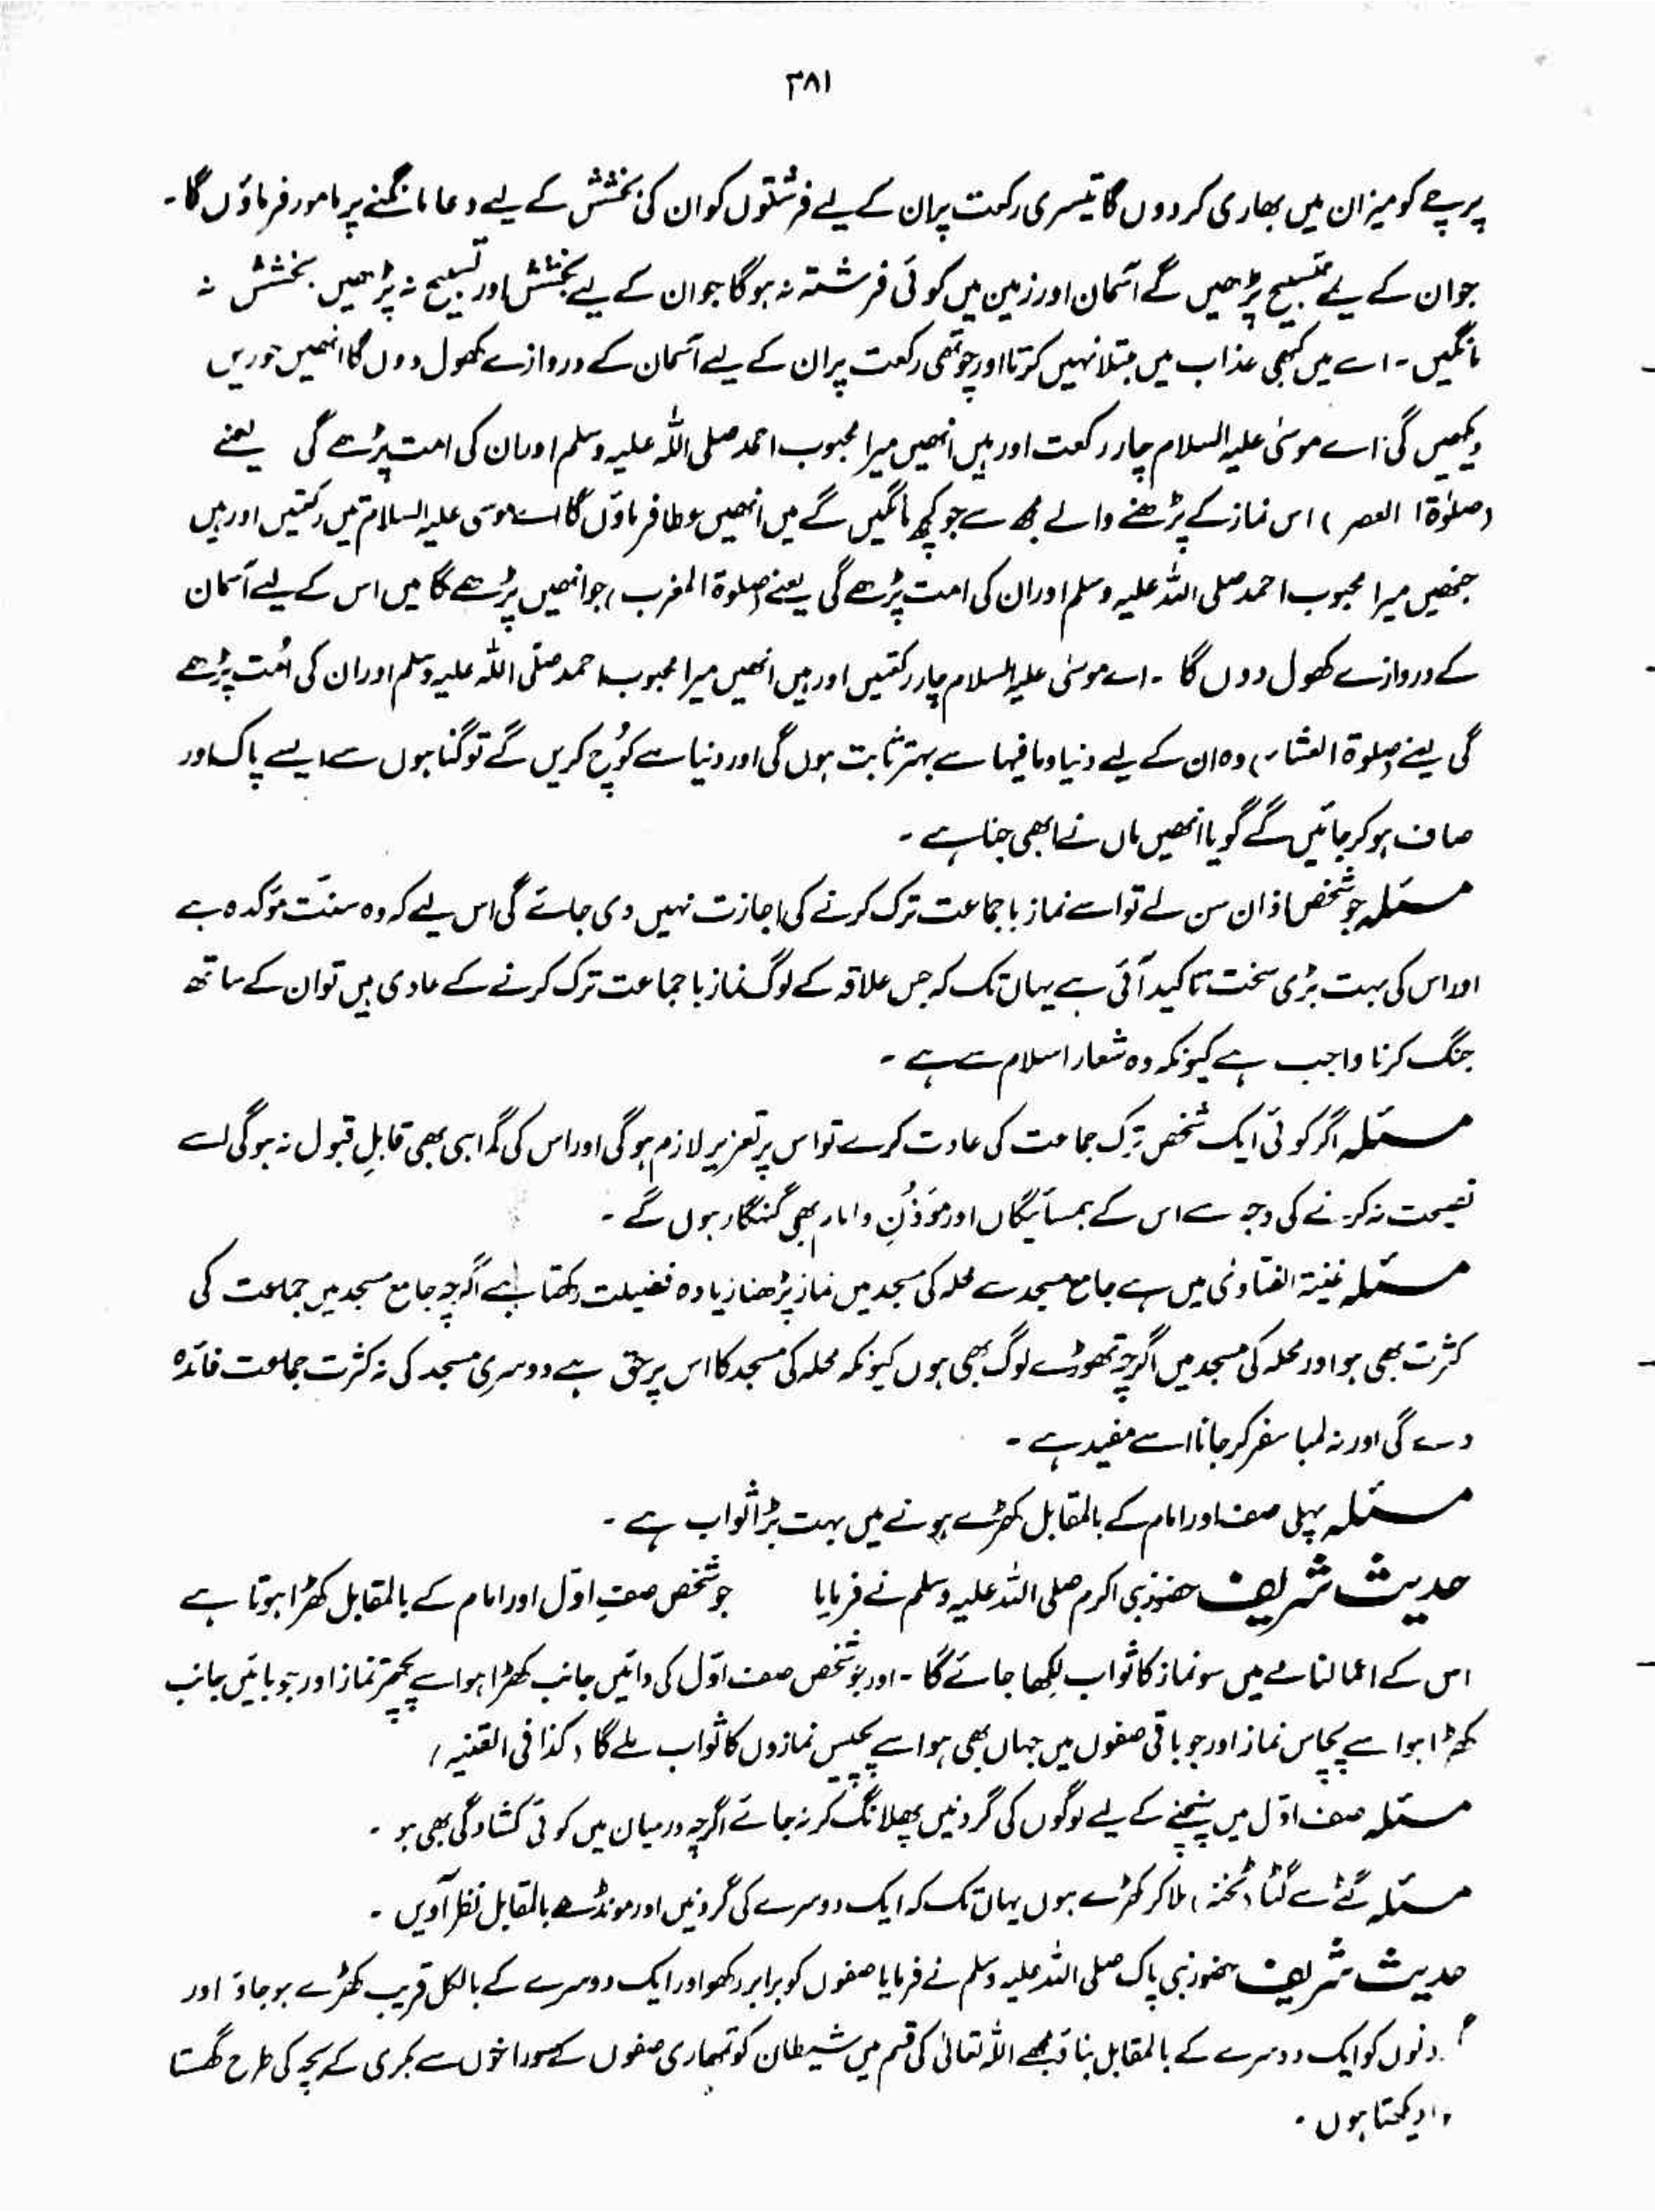 ۳۸۱
پرچے کو میزان میں بھاری کر دوں گا تیسری رکعت پر ان کے لیے فرشتوں کو ان کی بخشش کے لیے دعا مانگنے پر مامور فرماؤں گا۔
جو ان کے لیے تسبیح پڑھیں گے آسمان اور زمین میں کوئی فرشتہ نہ ہوگا جو ان کے لیے بخشش اور تسبیح نہ پڑھیں بخشش نہ
مانگیں۔ اسے میں کبھی عذاب میں مبتلا نہیں کرتا اور چوتھی رکعت پر ان کے لیے آسمان کے دروازے کھول دوں گا انھیں حوریں
دیکھیں گی اے موسیٰ علیہ السلام چار رکعت اور ہیں انھیں میرا محبوب احمد صلی اللہ علیہ وسلم اور ان کی امت پڑھے گی یعنے
(صلوٰۃ العصر) اس نماز کے پڑھنے والے مجھ سے جو کچھ مانگیں گے میں انھیں عطا فرماؤں گا اے موسی علیہ السلام تین رکعتیں اور ہیں
جنھیں میرا محبوب احمد صلی اللہ علیہ وسلم اور ان کی امت پڑھے گی یعنے (صلوۃ المغرب) جو انھیں پڑھے گا میں اس کے لیے آسمان
کے دروازے کھول دوں گا ۔ اے موسیٰ علیہ السلام چار رکعتیں اور ہیں انھیں میرا محبوب احمد صلّی اللہ علیہ وسلم اور ان کی اُمت پڑھے
گی یعنے (صلوۃ العشاء) وہ ان کے لیے دنیا و مافیہا سے بہتر ثابت ہوں گی اور دنیا سے کُوچ کریں گے تو گناہوں سے ایسے پاک اور
صاف ہو کر جائیں گے گویا انھیں ماں نے ابھی جنا ہے ۔
مسئلہ جو شخص اذان سن لے تو اسے نماز با جماعت ترک کرنے کی اجازت نہیں دی جائے گی اس لیے کہ وہ سنّت مؤکدہ ہے
اور اس کی بہت بڑی سخت تاکید آئی ہے یہاں تک کہ جس علاقہ کے لوگ نماز با جماعت ترک کرنے کے عادی ہیں تو ان کے ساتھ
جنگ کرنا واجب ہے کیونکہ وہ شعار اسلام سے ہے ۔
مسئلہ اگر کوئی ایک شخص ترک جماعت کی عادت کرے تو اس پر تعزیر لازم ہوگی اور اس کی گواہی بھی قابلِ قبول نہ ہوگی اسے
نصیحت نہ کرنے کی وجہ سے اس کے ہمسائیگان اور مؤذن و امام بھی گنہگار ہوں گے ۔
مسئلہ غنیۃ الفتاویٰ میں ہے جامع مسجد سے محلہ کی مسجد میں نماز پڑھنا زیادہ فضیلت رکھتا ہے اگرچہ جامع مسجد میں جماعت کی
کثرت بھی ہو اور محلہ کی مسجد میں اگرچہ تھوڑے لوگ بھی ہوں کیونکہ محلہ کی مسجد کا اس پر حق ہے دوسری مسجد کی نہ کثرت جماعت فائدہ
دے گی اور نہ لمبا سفر کر جانا اسے مفید ہے ۔
مسئلہ پہلی صف اور امام کے بالمقابل کھڑے ہونے میں بہت بڑا ثواب ہے ۔
حدیث شریف حضور نبی اکرم صلی اللہ علیہ وسلم نے فرمایا جو شخص صفِ اوّل اور امام کے بالمقابل کھڑا ہوتا ہے
اس کے اعمالنامے میں سو نماز کا ثواب لکھا جائے گا ۔ اور جو شخص صف اوّل کی دائیں جانب کھڑا ہو اسے پچھتر نماز اور جو بائیں جانب
کھڑا ہو اسے پچاس نماز اور جو باقی صفوں میں جہاں بھی ہو اسے پچیس نمازوں کا ثواب ملے گا (کذا فی القنیہ)
مسئلہ صف اوّل میں پہنچنے کے لیے لوگوں کی گردنیں پھلانگ کر نہ جائے اگرچہ درمیان میں کوئی کشادگی بھی ہو ۔
مسئلہ گٹے سے گٹا (ٹخنہ) ملا کر کھڑے ہوں یہاں تک کہ ایک دوسرے کی گردنیں اور مونڈھے بالمقابل نظر آویں ۔
حدیث شریف حضور نبی پاک صلی اللہ علیہ وسلم نے فرمایا صفوں کو برابر رکھو اور ایک دوسرے کے بالکل قریب کھڑے ہو جاؤ اور
گردنوں کو ایک دوسرے کے بالمقابل بناؤ مجھے اللہ تعالیٰ کی قسم میں شیطان کو تمہاری صفوں کے سوراخوں سے بکری کے بچہ کی طرح گھستا
ہوا دیکھتا ہوں ۔